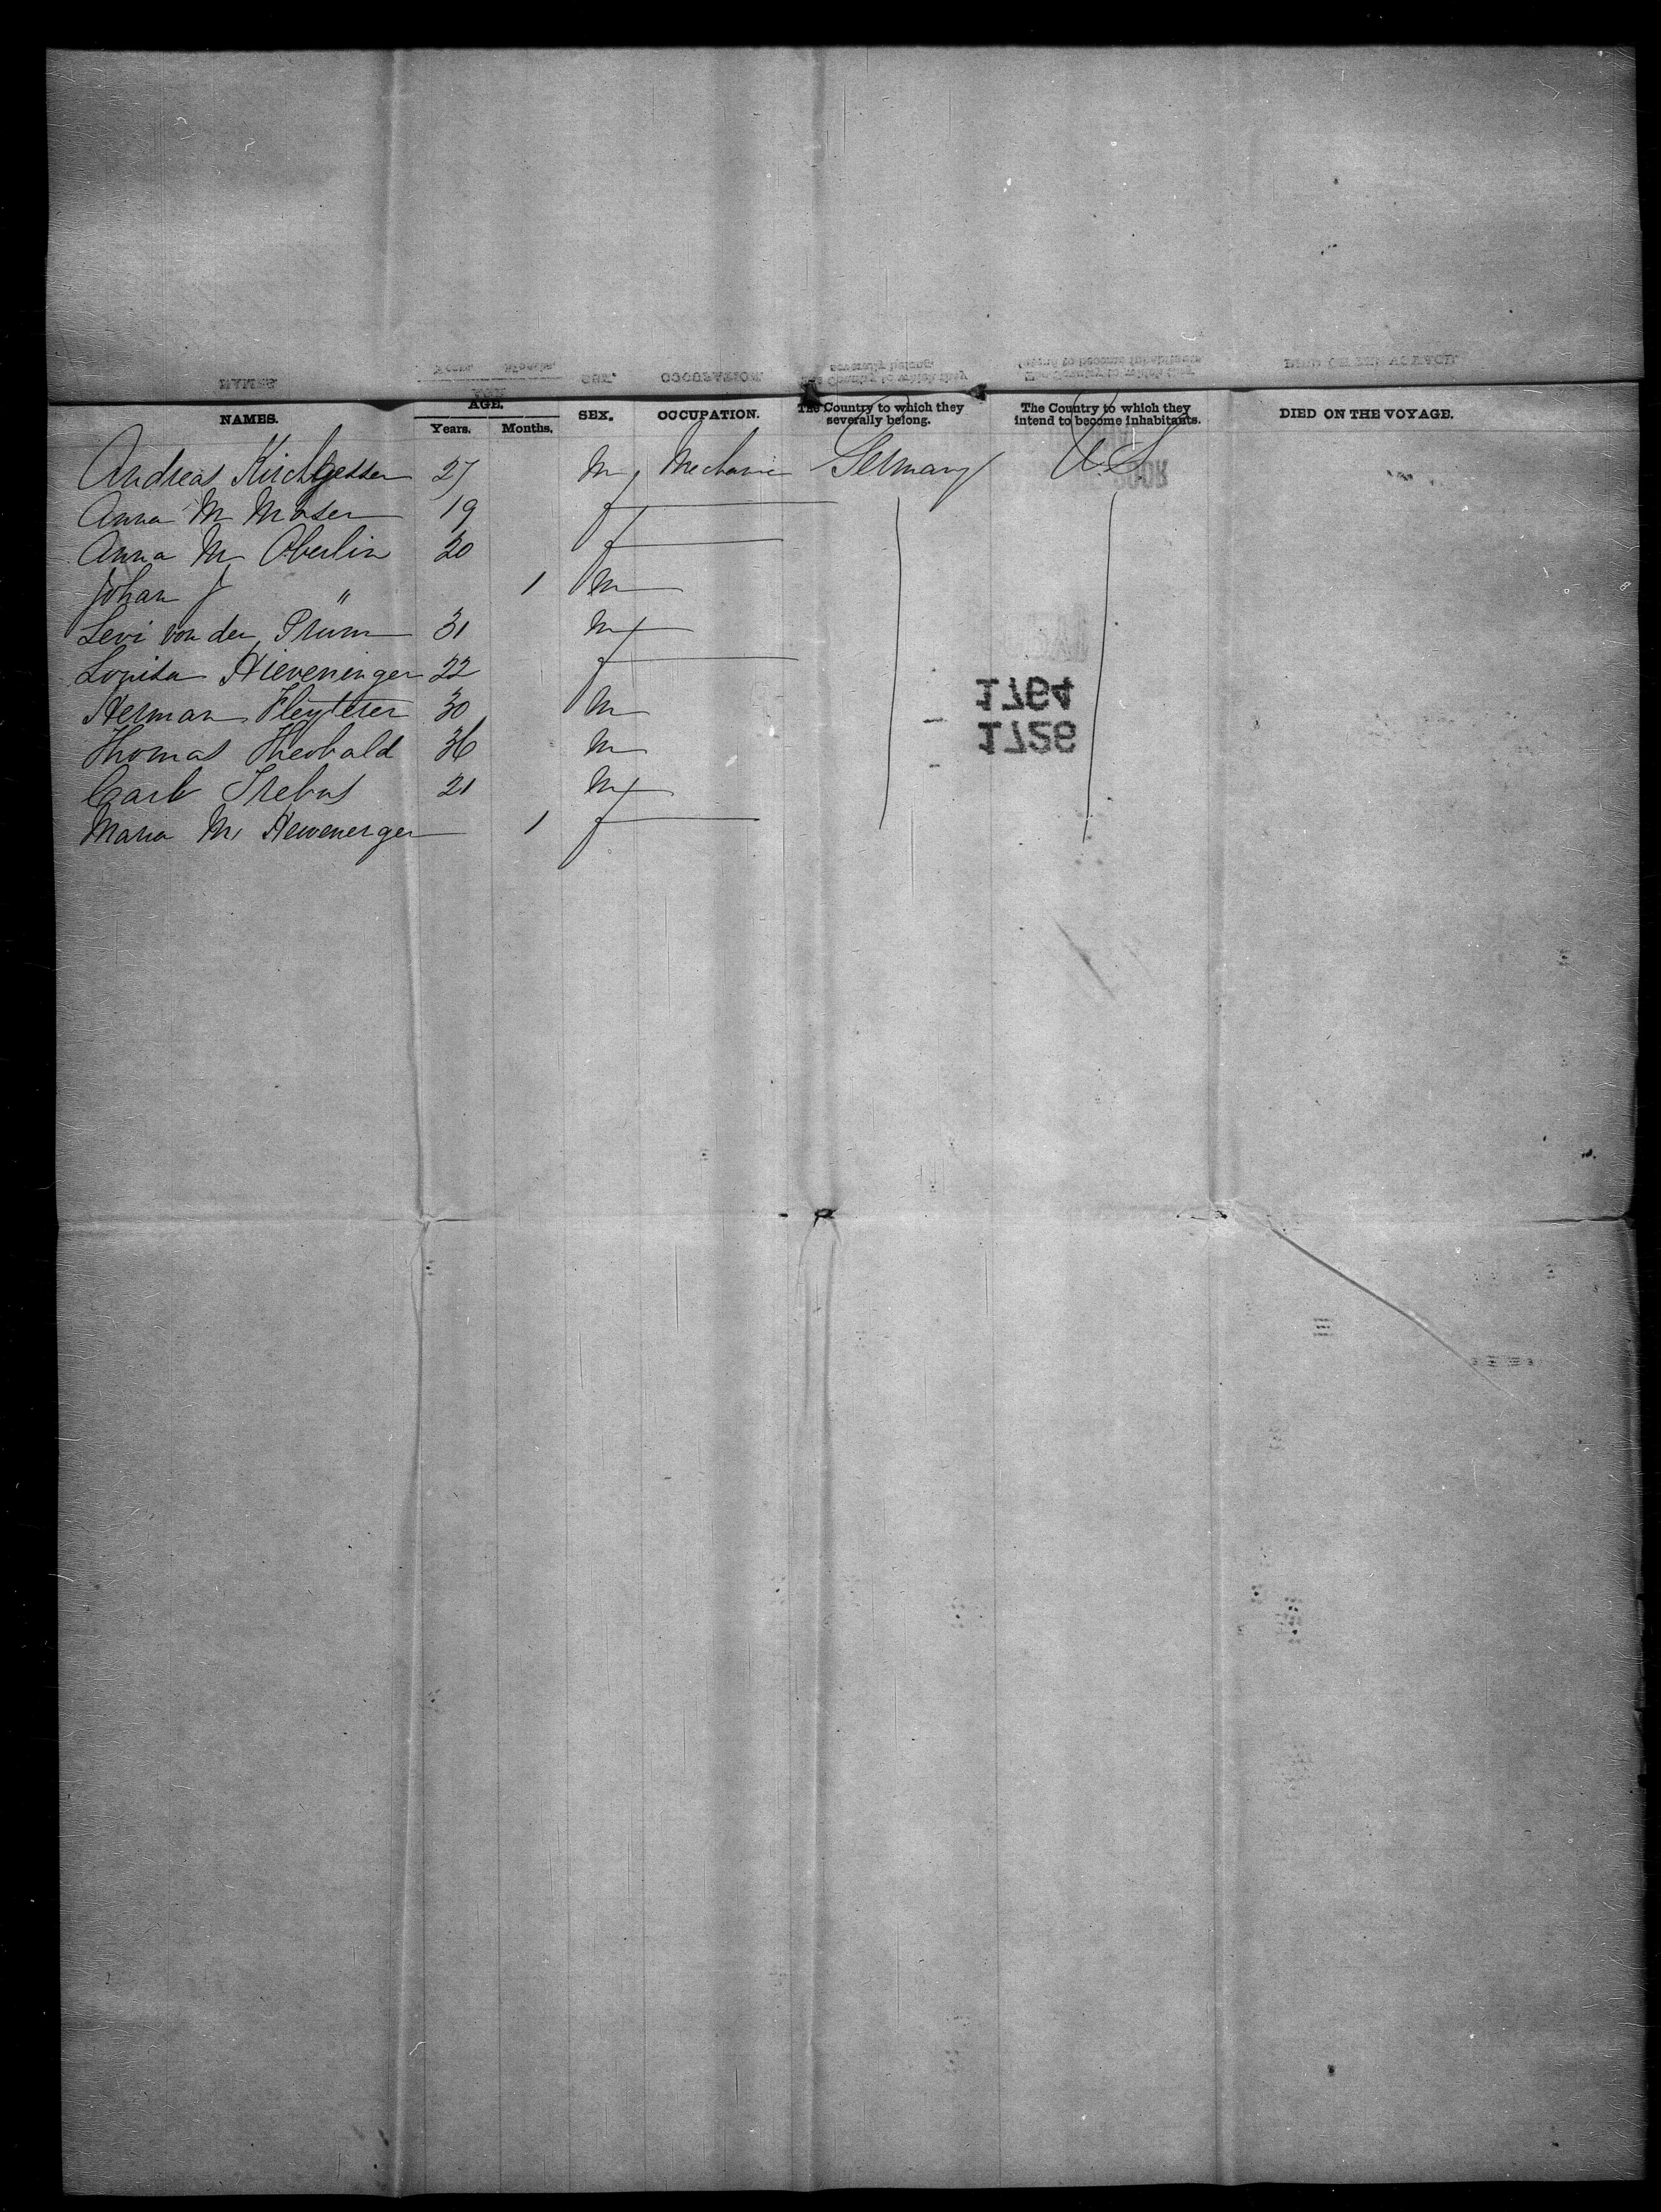 NAMES.
AGE.
Years. Months.
SEX.
OCCUPATION.
The Country to which they
severally belong.
The Country to which they
intend to become inhabitants.
DIED ON THE VOYAGE.
Andreas Kirchgessen 27 M Mechanic Germany U.S
Anna M Moser 19 f
Anna M Oberlin 20 f
Johan J " 1 M
Levi von der Prum 31 M
Louisa Hieveninger 22 f
Herman Pleyteter 30 M
Thomas Theobald 36 M
Carl Trebus 21 M
Maria M. Hewenerger 1 f
1764
1726